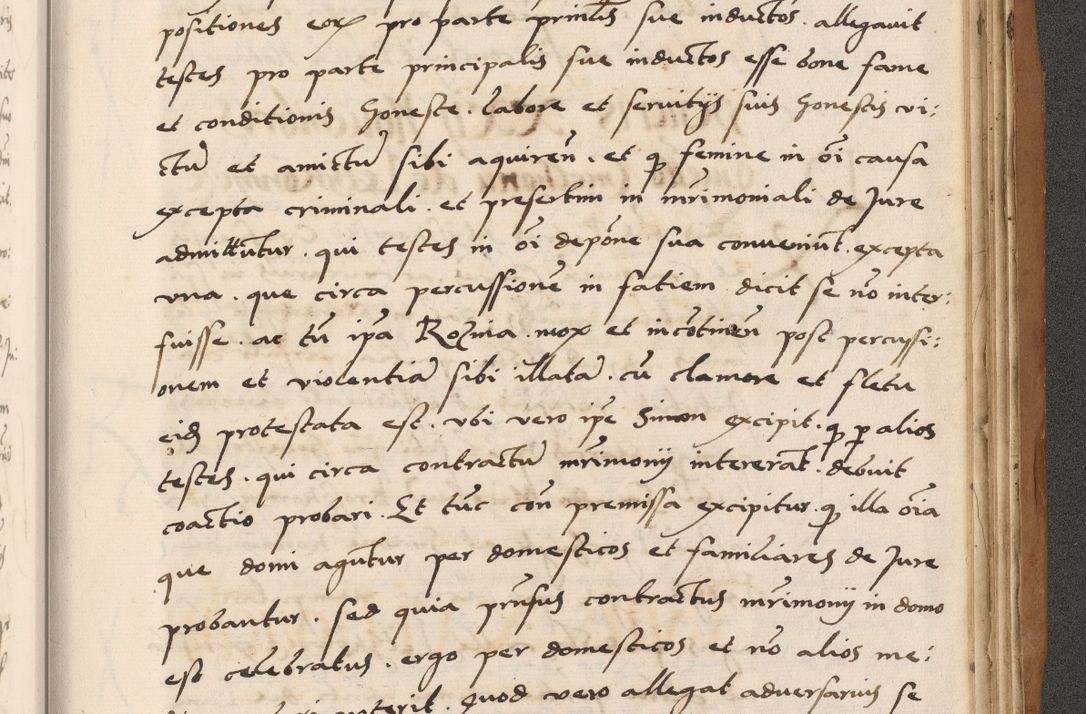 positiones eoꝝ pro parte prinlis sue inductos. allegavit
testes pro parte principalis sue inductos esse bone fame
et conditionis honeste. labore et servitijs suis honestis vi:
ctū et amictū sibi aquireñ. et ꝙ femine in oi causa
excepta criminali. et presertim in mr̃imoniali de Jure
admittūtur. qui testes in oi depõne sua conveniūt. excepta
vna. que circa percussionē in fatiem dicit se nõ inter:
fuisse. ac tñ ipa Rozina. mox et incõtineñ post percussi:
onem et violentiā sibi illatā. cū clamore et fletu
eid protestata est. vbi vero ipe Simon excipit. ꝙ ꝑ alios
testes. qui circa contractū mr̃imonij intererāt. debuit
coactio probari. Et tūc coñ premissa excipitur. ꝙ illa oia
que domi agūtur per domesticos et familiares de Jure
probantur. sed quia prñsus contractus mr̃imonij in domo
est celebratus. ergo per domesticos et nõ alios me:
Quod vero allegat adversarius se